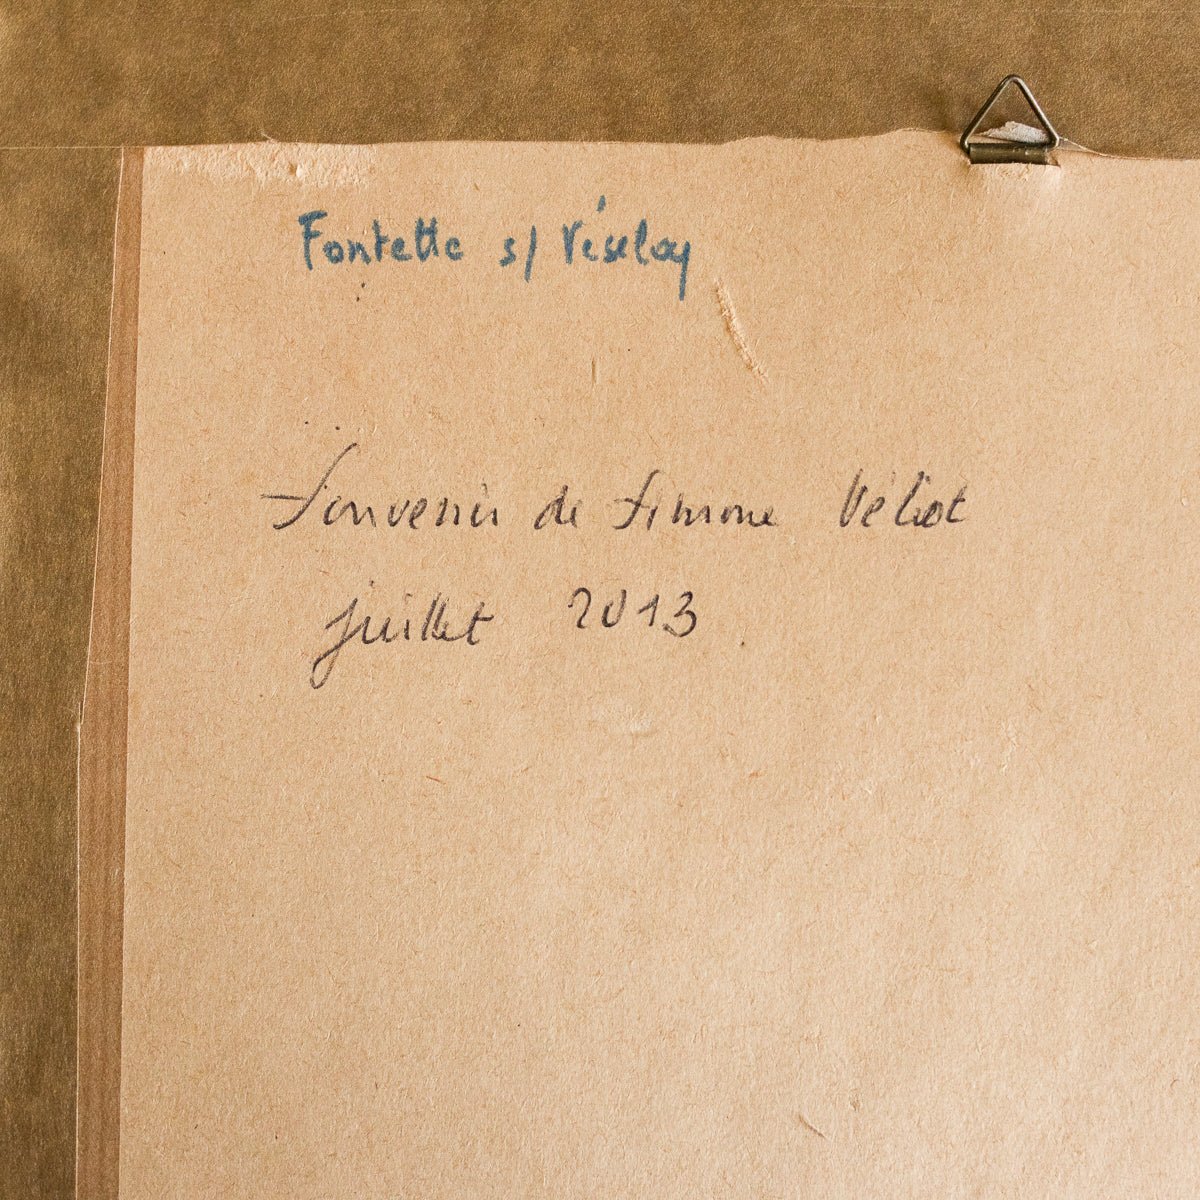 Fontette s/ Véselay
Souvenir de Simone Véliot
juillet 2013